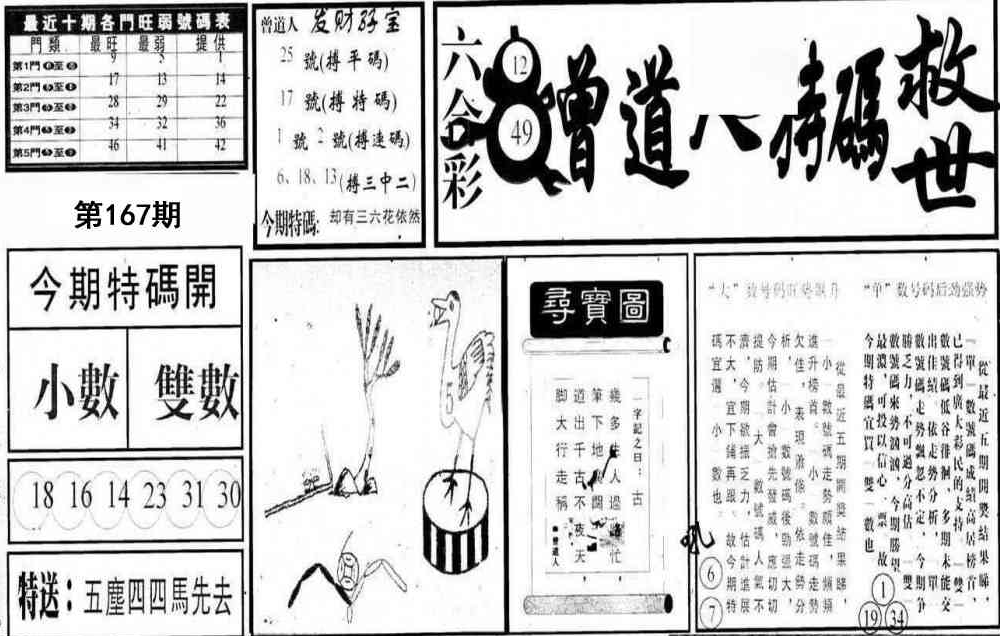 最近十期各門旺弱號碼表
門類 最旺 最弱 提供
第1門 至 9 5 1
第2門 至 17 13 14
第3門 至 28 29 22
第4門 至 34 32 36
第5門 至 46 41 42
第167期
今期特碼開
小數 雙數
18 16 14 23 31 30
特送：五塵四四馬先去
曾道人 发财好宝
25 號(搏平碼)
17 號(搏特碼)
1 號 2 號(搏連碼)
6、18、13(搏三中二)
今期特碼: 却有三六花依然
六合彩
12
49
曾道人特碼
救世
尋寶圖
一字記之曰：古
幾多生人過路忙
筆下地闊
道出千古不夜天
脚大行走稱
曾道人
“大”数号码旺势飙升
從最近五期開獎結果睇，
一小一數號碼走勢頗佳，頻頻
進升榜首。一小一數號碼走勢
欠佳，表現
析，一小一數號碼後勁強大，
今期估計會搶先發威，應切切
提防。一大一數號碼人氣不
濟，今期欲振乏力，估計進展
不大，宜下鋪再跟。故今期特
碼宜選一小一數也。
6
7
“单”数号码后劲强势
從最近五期開獎結果睇，
『單』數號碼成績高居榜首，
已得到廣大彩民的支持。一雙一
數號碼低谷徘徊，多期未能交
出佳績。依走勢分析，一單一
數號碼走勢飄忽不定，今期爭
勝乏力，不可過分高估。一雙一
數號碼來勢洶洶，今期勝望
最濃，可投以信心一票。故
今期特碼宜買一雙一數也
1
19 34